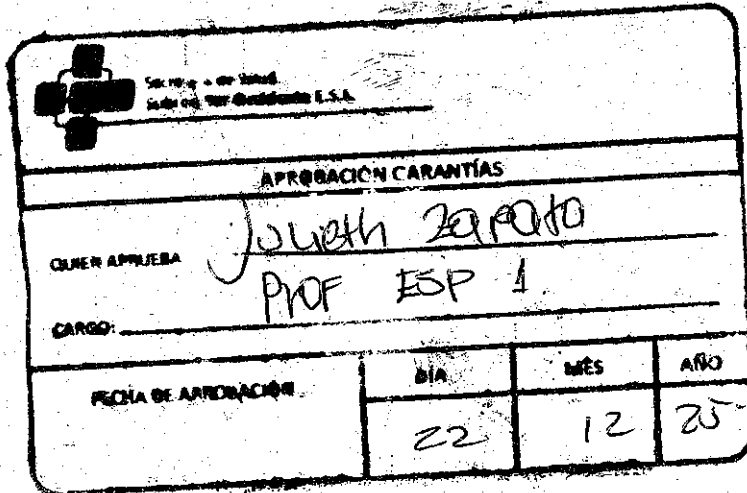 Secretaría de Salud
Subred Sur Occidente E.S.E.
APROBACIÓN GARANTÍAS
QUIEN APRUEBA Julieth Zapata
CARGO: Prof ESP 1
FECHA DE APROBACIÓN DÍA MES AÑO
22 12 25